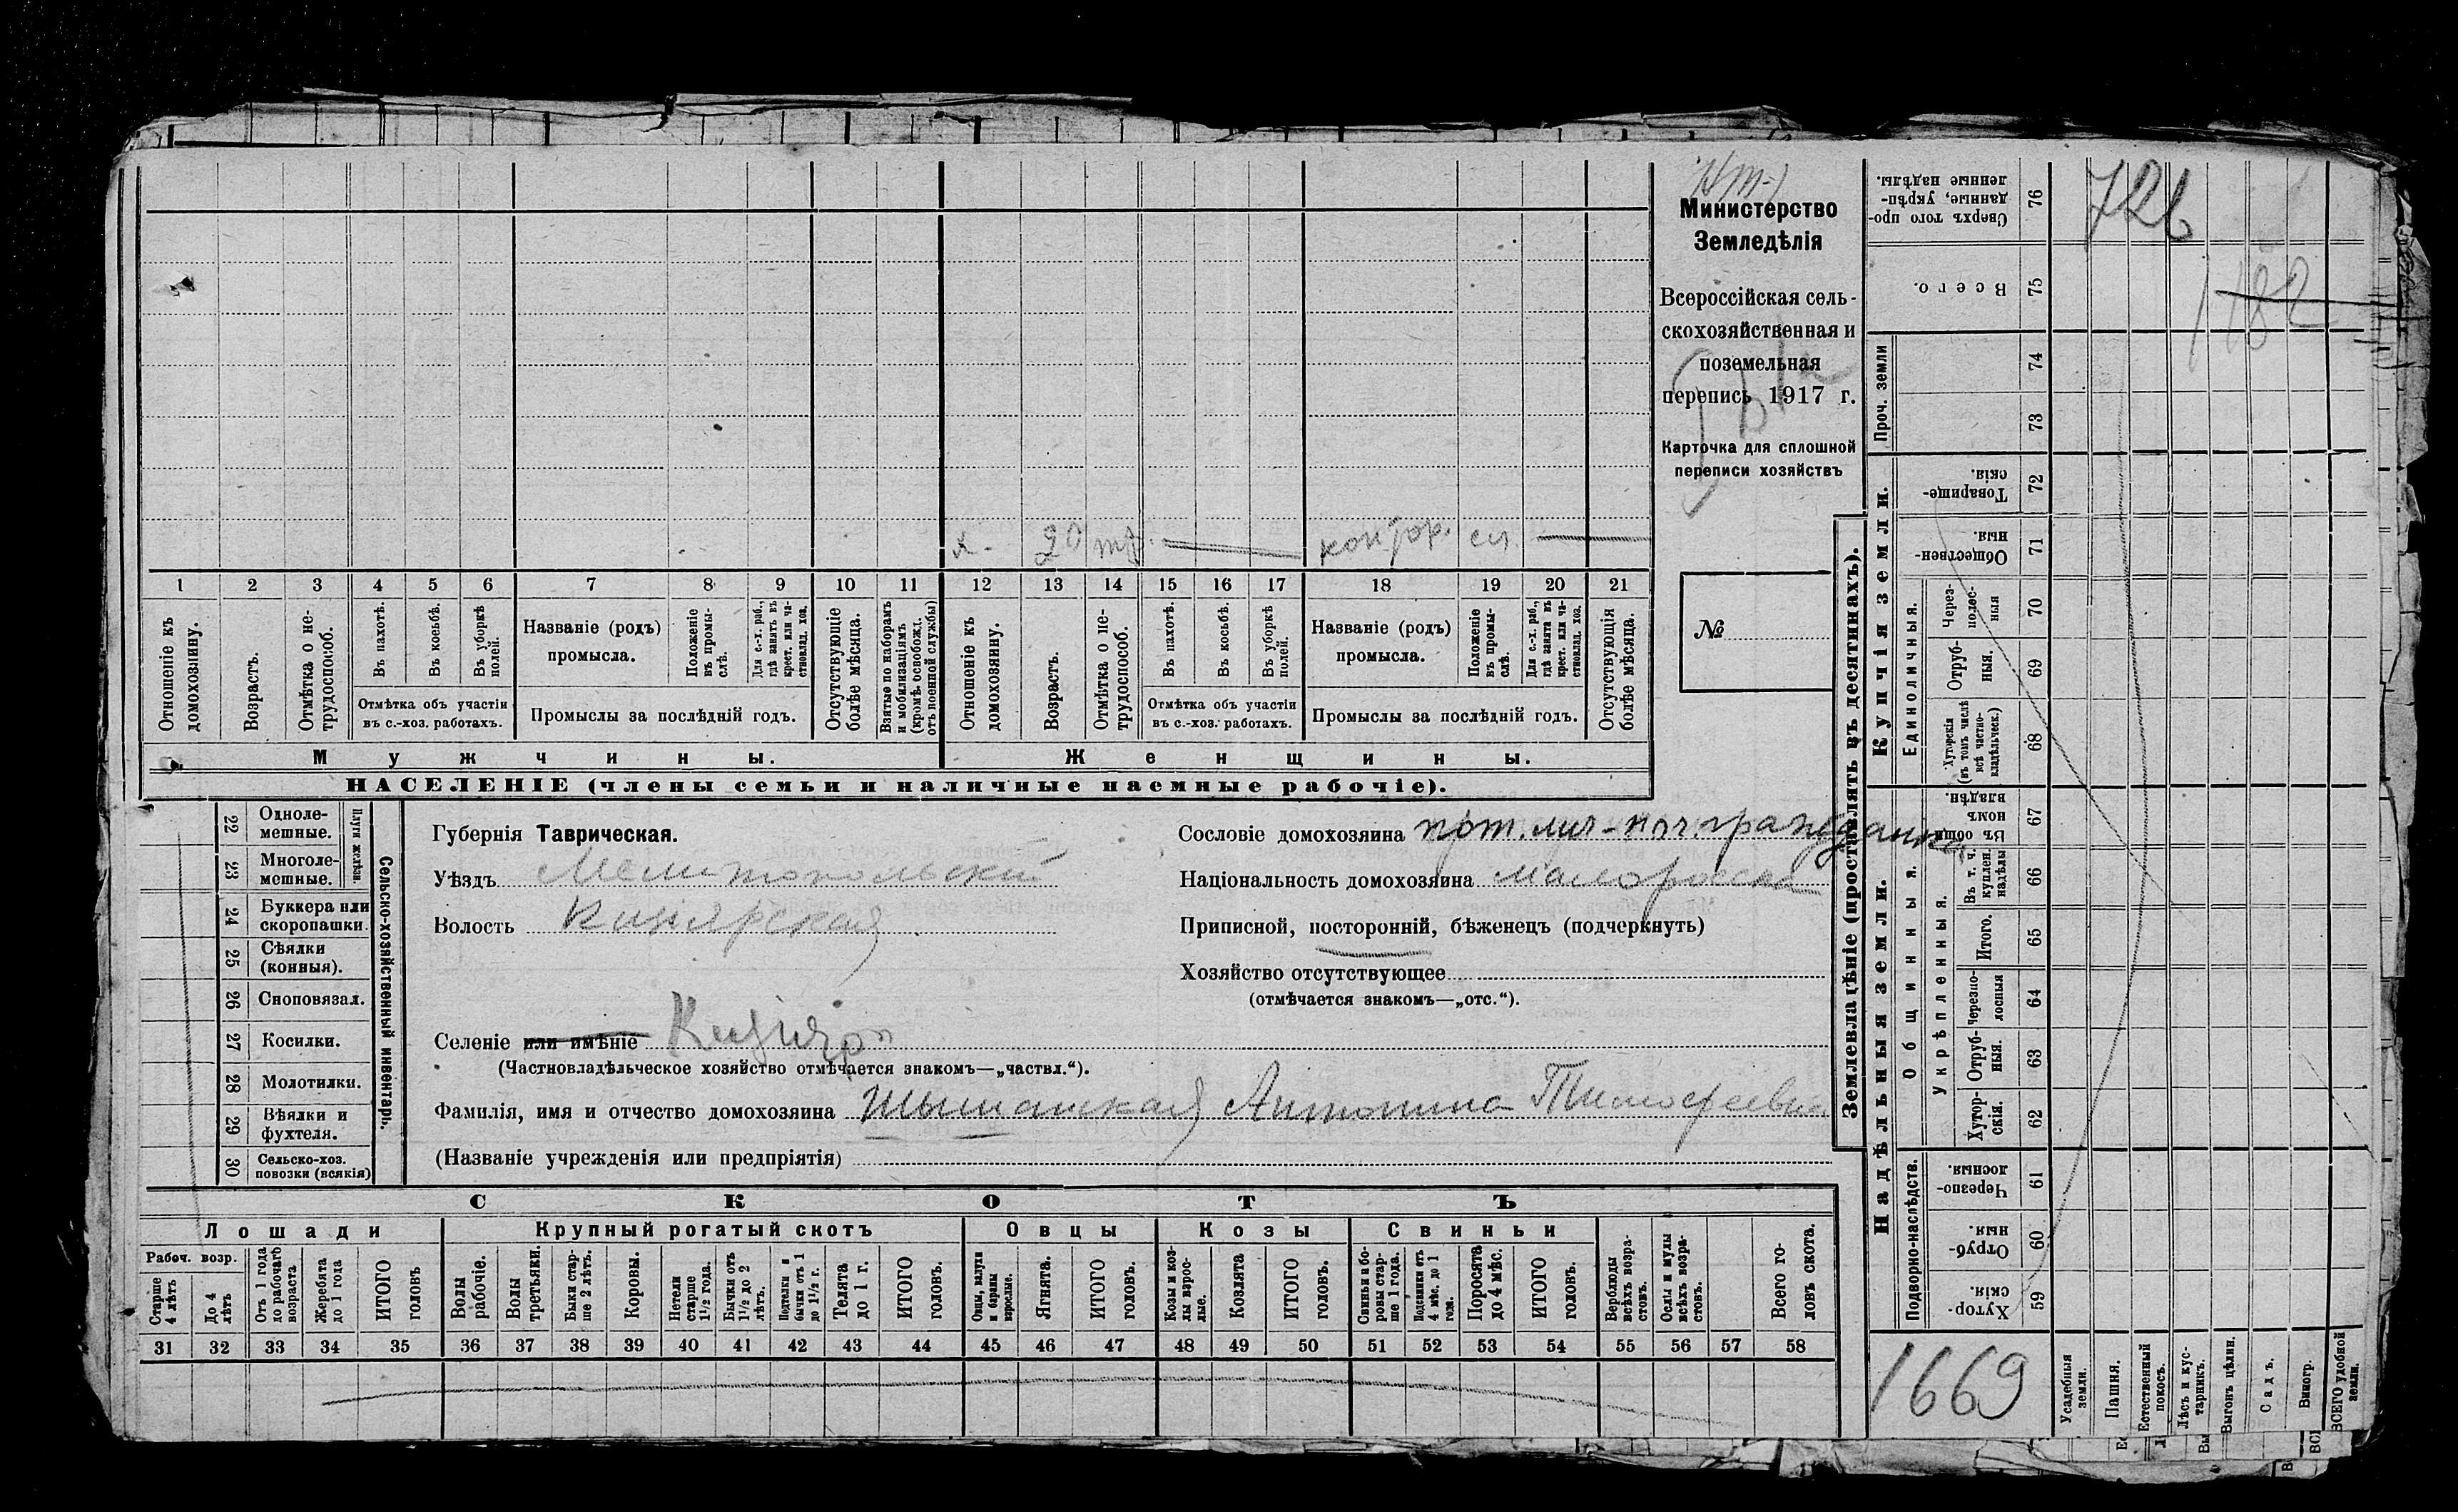 Министерство
Земледѣлія
Всероссійская сель-
скохозяйственная и
поземельная
перепись 1917 г.
Карточка для сплошной
переписи хозяйствъ
№
х. 20 конјор. сл.
1 2 3 4 5 6 7 8 9 10 11 12 13 14 15 16 17 18 19 20 21
Отношеніе къ домохозяину.
Возрастъ.
Отмѣтка о не-трудоспособ.
Въ пахотѣ.
Въ косьбѣ.
Въ уборкѣ полей.
Отмѣтка объ участіи
въ с.-хоз. работахъ.
Названіе (родъ)
промысла.
Положеніе въ промы-слѣ.
Для с.-х. раб., гдѣ занятъ въ крест. или ча-стновлад. хоз.
Промыслы за послѣдній годъ.
Отсутствующіе болѣе мѣсяца.
Взятые по наборамъ и мобилизаціямъ (кромѣ освобожд. отъ военной службы)
Отношеніе къ домохозяину.
Возрастъ.
Отмѣтка о не-трудоспособ.
Въ пахотѣ.
Въ косьбѣ.
Въ уборкѣ полей.
Отмѣтка объ участіи
въ с.-хоз. работахъ.
Названіе (родъ)
промысла.
Положеніе въ промы-слѣ.
Для с.-х. раб., гдѣ занята въ крест. или ча-стновлад. хоз.
Промыслы за послѣдній годъ.
Отсутствующія болѣе мѣсяца.
Мужчины. Женщины.
НАСЕЛЕНІЕ (члены семьи и наличные наемные рабочіе).
Сельско-хозяйственный инвентарь.
Плуги желѣзн.
22 Одноле-мешные.
23 Многоле-мешные.
24 Буккера или скоропашки.
25 Сѣялки (конныя).
26 Сноповязал.
27 Косилки.
28 Молотилки.
29 Вѣялки и фухтеля.
30 Сельско-хоз. повозки (всякія)
Губернія Таврическая.
Уѣздъ Мелитопольскій
Волость Кизіярская
Селеніе или имѣніе Кизіяръ
(Частновладѣльческое хозяйство отмѣчается знакомъ—„частвл.“).
Фамилія, имя и отчество домохозяина Антонина Тимофеевна
(Названіе учрежденія или предпріятія)
Сословіе домохозяина пот. поч. гражданка
Національность домохозяина малоросска
Приписной, посторонній, бѣженецъ (подчеркнуть)
Хозяйство отсутствующее
(отмѣчается знакомъ—„отс.“).
СКОТЪ
Лошади Крупный рогатый скотъ Овцы Козы Свиньи
Рабоч. возр.
Старше 4 лѣтъ
До 4 лѣтъ
Отъ 1 года до рабочаго возраста
Жеребята до 1 года
ИТОГО головъ
Волы рабочіе.
Волы третьяки.
Быки стар-ше 2 лѣтъ.
Коровы.
Нетели старше 1½ года.
Бычки отъ 1½ до 2 лѣтъ.
Подтелки и бычки отъ 1 до 1½ г.
Телята до 1 г.
ИТОГО головъ.
Овцы, валухи и бараны взрослые.
Ягнята.
ИТОГО головъ.
Козы и коз-лы взрос-лые.
Козлята
ИТОГО головъ.
Свиньи и бо-ровы стар-ше 1 года.
Подсвинки отъ 4 мѣс. до 1 года.
Поросята до 4 мѣс.
ИТОГО головъ.
Верблюды всѣхъ возра-стовъ.
Ослы и мулы всѣхъ возра-стовъ.
Всего го-ловъ скота.
31 32 33 34 35 36 37 38 39 40 41 42 43 44 45 46 47 48 49 50 51 52 53 54 55 56 57 58
Землевладѣніе (проставлять въ десятинахъ).
Надѣльныя земли. Купчія земли. Проч. земли
Подворно-наслѣдств.
Общинныя.
Укрѣпленныя.
Единоличныя.
59 Хутор-скія.
60 Отруб-ныя.
61 Черезпо-лосныя.
62 Хутор-скія.
63 Отруб-ныя.
64 Черезпо-лосныя
65 Итого.
66 Въ т. ч. куплен. надѣлы
67 Въ общин-номъ владѣн.
68 Хуторскія (въ томъ числѣ всѣ частно-владѣльческ.)
69 Отруб-ныя.
70 Через-полос-ныя
71 Обществен-ныя.
72 Товарище-скія.
73
74
75 Всего.
76 Сверхъ того про-данные, укрѣп-ленные надѣлы.
Усадебныя земли.
Пашня.
Естественный покосъ.
Лѣсъ и кус-тарникъ.
Выгонъ цѣлин.
Садъ.
Виногр.
ВСЕГО удобной земли.
726
1182
1669